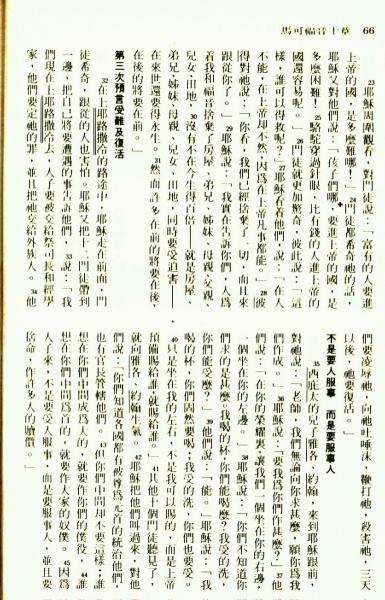 馬可福音十章 66
23耶穌周圍觀看，對門徒說：「富有的人要進
上帝的國，是多麼難哪！」24門徒都希奇祂的話，
耶穌又對他們說：「孩子們哪，要進上帝的國，是
多麼困難！25駱駝穿過針眼，比有錢的人進上帝的
國還容易呢。」26門徒就更加驚奇，彼此說：「這
樣，誰可以得救呢？」27耶穌看着他們，說：「在人
不能，在上帝却不然，因爲在上帝凡事都能。」28彼
得對祂說：「你看，我們已經捨棄了一切，而且來
跟從你了。」29耶穌說：「我實在告訴你們，人爲
着我和福音捨棄了房屋、弟兄、姊妹、母親、父親、
兒女、田地，30沒有不在今生得百倍——就是房屋、
弟兄、姊妹、母親、兒女、田地，同時要受迫害——
在來世還要得永生。31然而許多在前的將要在後，
在後的將要在前。」
第三次預言受難及復活
32在上耶路撒冷的路途中，耶穌走在前面，門
徒希奇，跟從的人也害怕。耶穌又把十二門徒帶到
一邊，把自己將要遭遇的事告訴他們，33說：「我
們現在上耶路撒冷去，人子要被交給祭司長和經學
家，他們要定祂的罪，並且把祂交給外族人。34他
們要凌辱祂，向祂吐唾沫，鞭打祂，殺害祂，三天
以後，祂要復活。」
不是要人服事 而是要服事人
35西庇太的兒子雅各、約翰，來到耶穌跟前，
對祂說：「老師，我們無論向你求甚麼，願你爲我
們作成。」36耶穌說：「要我爲你們作甚麼？」37他
們說：「在你的榮耀裏，讓我們一個坐在你的右邊，
一個坐在你的左邊。」38耶穌說：「你們不知道你
們求的是甚麼，我喝的杯，你們能喝麼？我受的洗，
你們能受麼？」39他們說：「能。」耶穌說：「我
喝的杯，你們固然要喝；我受的洗，你們也要受。
40只是坐在我的左右，不是我可以賜的，而是上帝
預備賜給誰，就賜給誰。」41其他十個門徒聽見了，
就向雅各、約翰生氣。42耶穌把他們叫過來，對他
們說：「你們知道各國都有被尊爲元首的統治他們，
也有官長管轄他們。43但你們中間却不要這樣；誰
想在你們中間成爲大的，就要作你們的僕役，44誰
想在你們中間爲首的，就要作大家的奴僕。45因爲
人子來，不是要受人服事，而是要服事人，並且要
捨命，作許多人的贖價。」